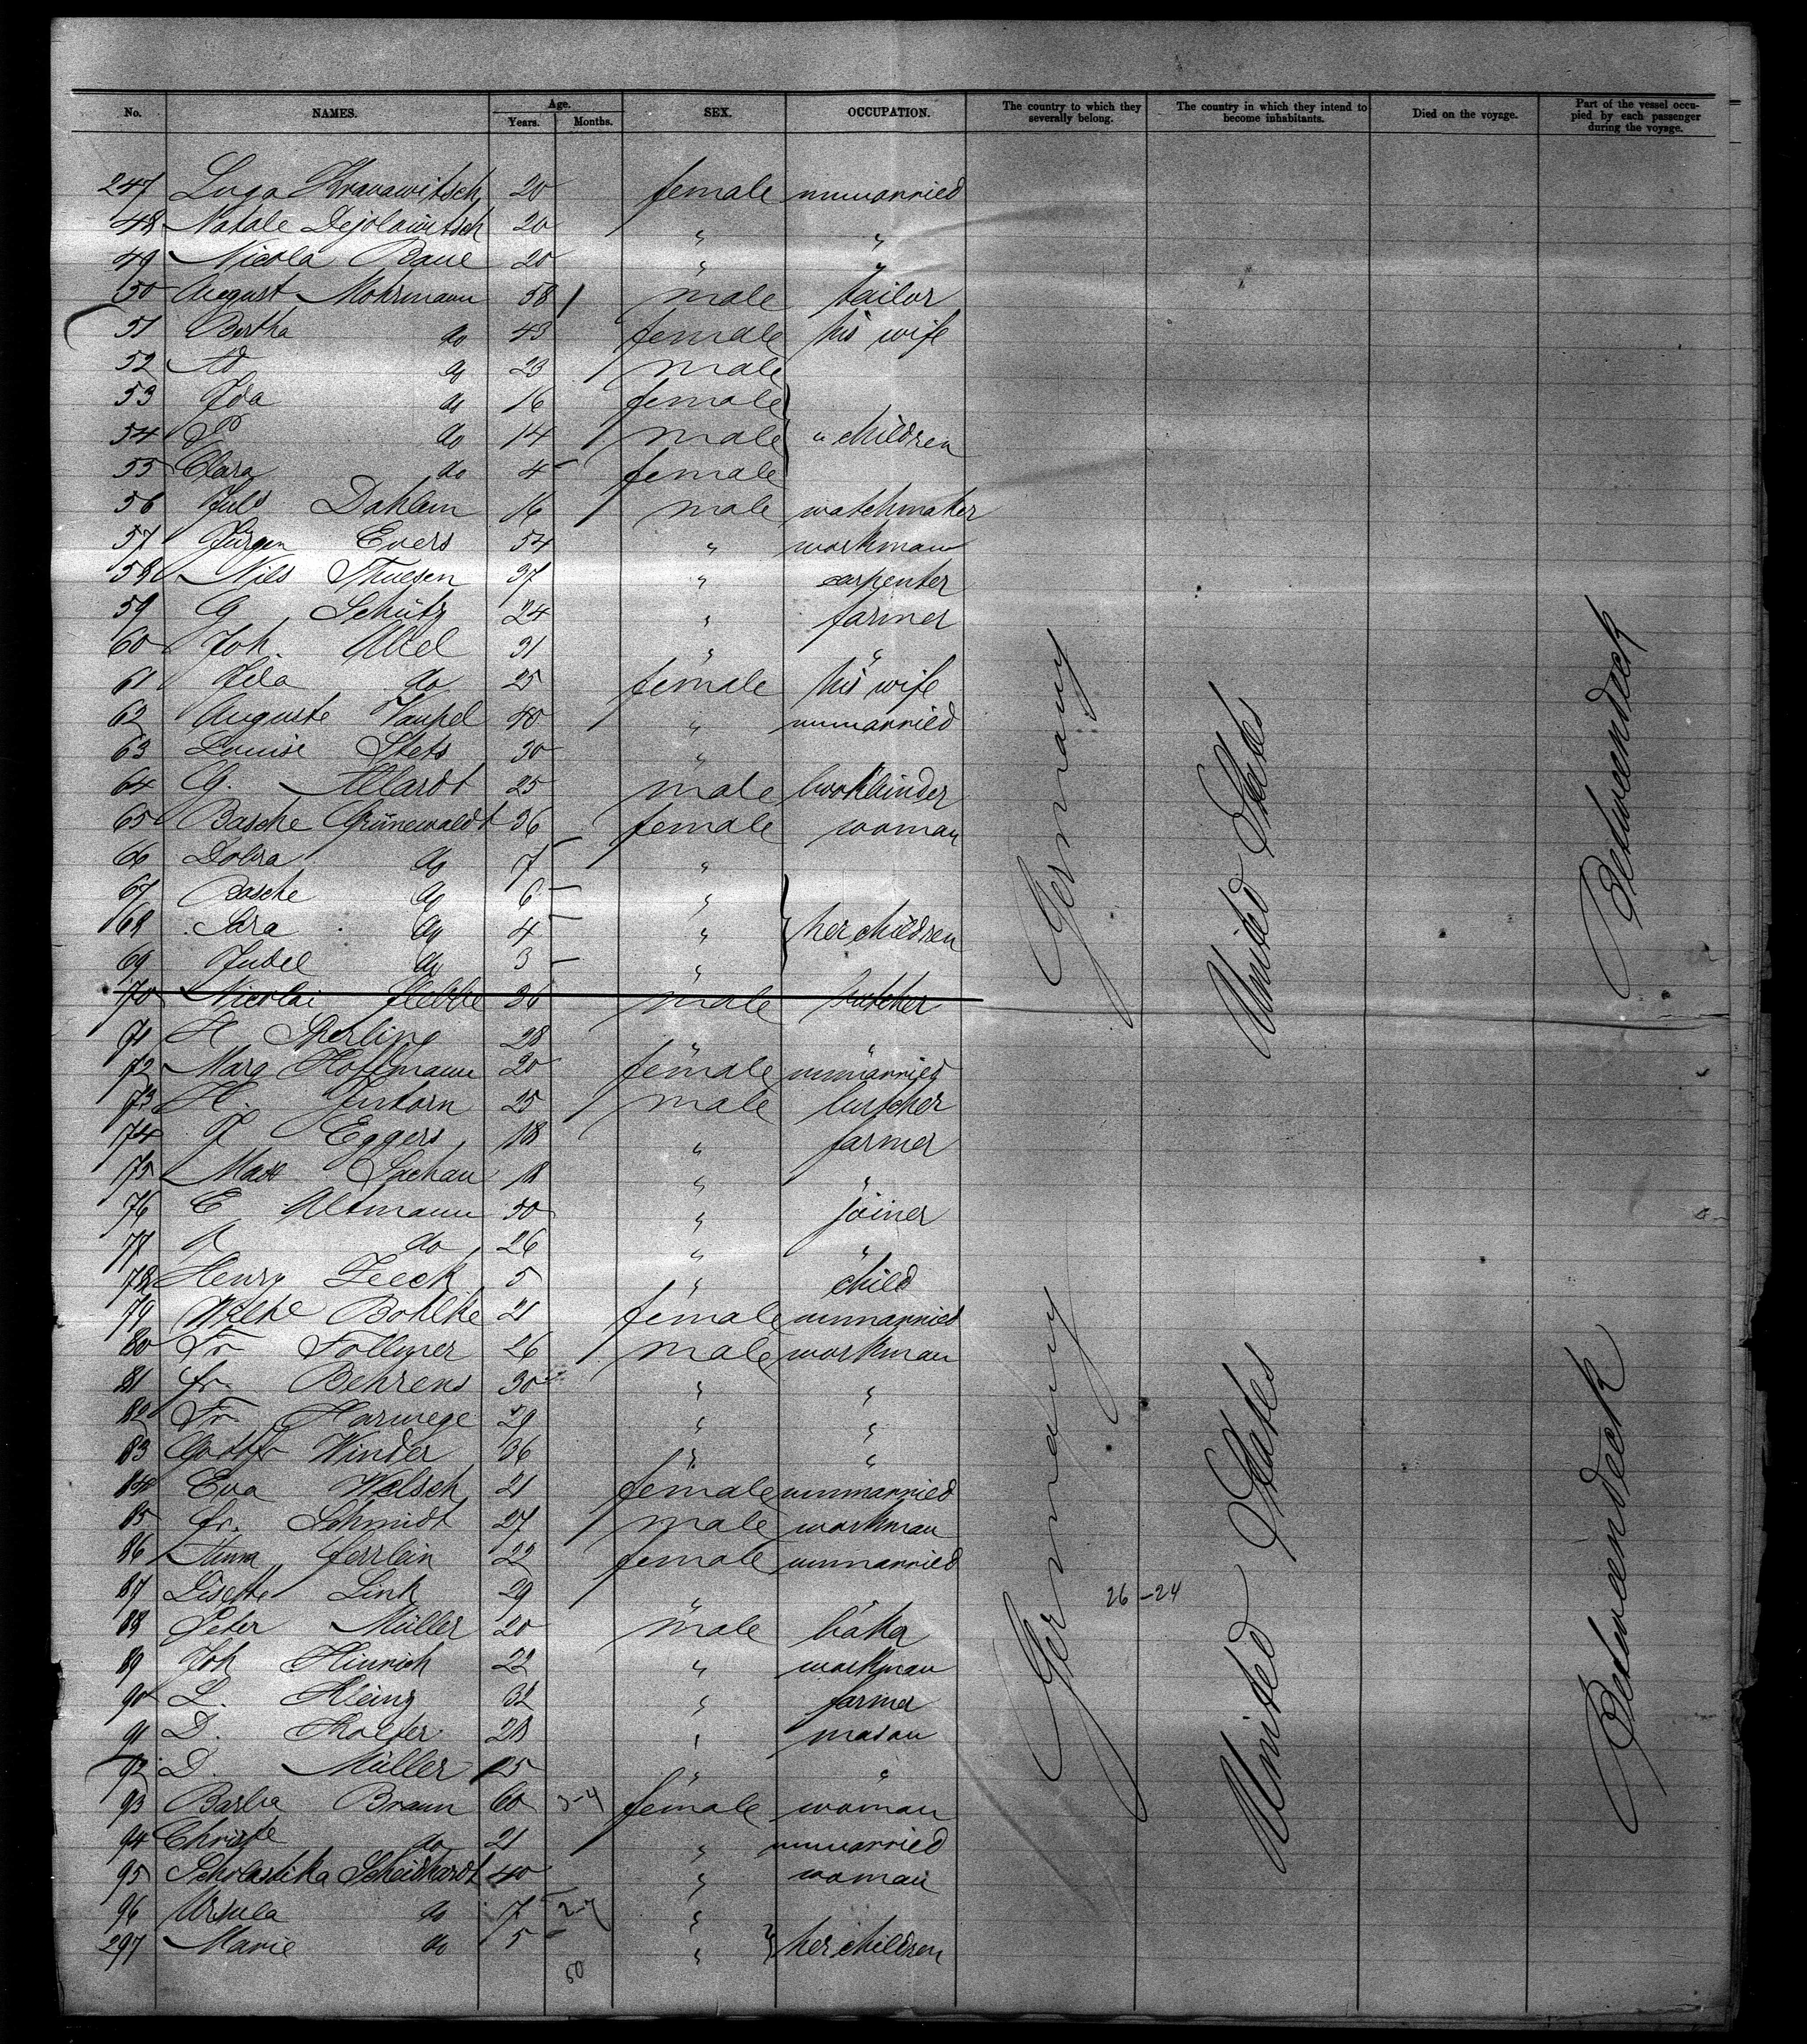 No. NAMES. Age. Years. Months. SEX. OCCUPATION. The country to which they severally belong. The country in which they intend to become inhabitants. Died on the voyage. Part of the vessel occupied by each passenger during the voyage.
247 Luga 20 female unmarried
48 Natale 20 " "
49 Nicola Baue 20 " "
50 August Mohrmann 58 male tailor
51 Bertha do 43 female his wife
52 Ad do 23 male
53 Ida do 16 female
54 P do 14 male " children
55 Clara do 4 female
56 Juls Dahlem 16 male watchmaker
57 Jürgen Evers 54 " workman
58 Nils Thulsen 37 " carpenter
59 G Schütz 24 " farmer
60 Joh. Abel 31 " "
61 do 25 female his wife
62 Auguste Vaupel 40 " unmarried
63 Louise Stets 30 "
64 G. Allardt 25 male bookbinder
65 Basche Grünewaldt 36 female woman
66 Dobra do 7 "
67 Basche do 6 "
68 Sara do 4 " her children
69 Judel do 3 "
70 Nicolai 36 male butcher
71 H Sperling 28 " "
72 Marg Hoffmann 20 female unmarried
73 H. 25 male butcher
74 Eggers 18 " farmer
75 Max Sachau 18 " "
76 E Altmann 30 " joiner
77 do 26 " "
78 Henry Zeeck 5 " child
79 Bohlke 21 female unmarried
80 Fr Follmer 26 male workman
81 fr. Behrens 30 " "
82 Fr Harmege 29 " "
83 Gottfr Winder 36 " "
84 Eva Welsch 21 female unmarried
85 fr. Schmidt 27 male workman
86 Ferrlein 22 female unmarried
87 Lisette Link 29 " "
88 Peter Müller 20 male baker
89 Joh Hinrich 22 " workman
90 L. Kleing 32 " farmer
91 D. 28 " mason
92 D. Müller 25 " "
93 Barba Braun 60 3-4 female woman
94 Christe do 21 " unmarried
95 Scholastika Scheidhardt 40 " woman
96 Ursula do 7 2-7 "
297 Marie do 5 " her children
50
Germany
United States
Betweendeck
26-24
Germany
United States
Betweendeck